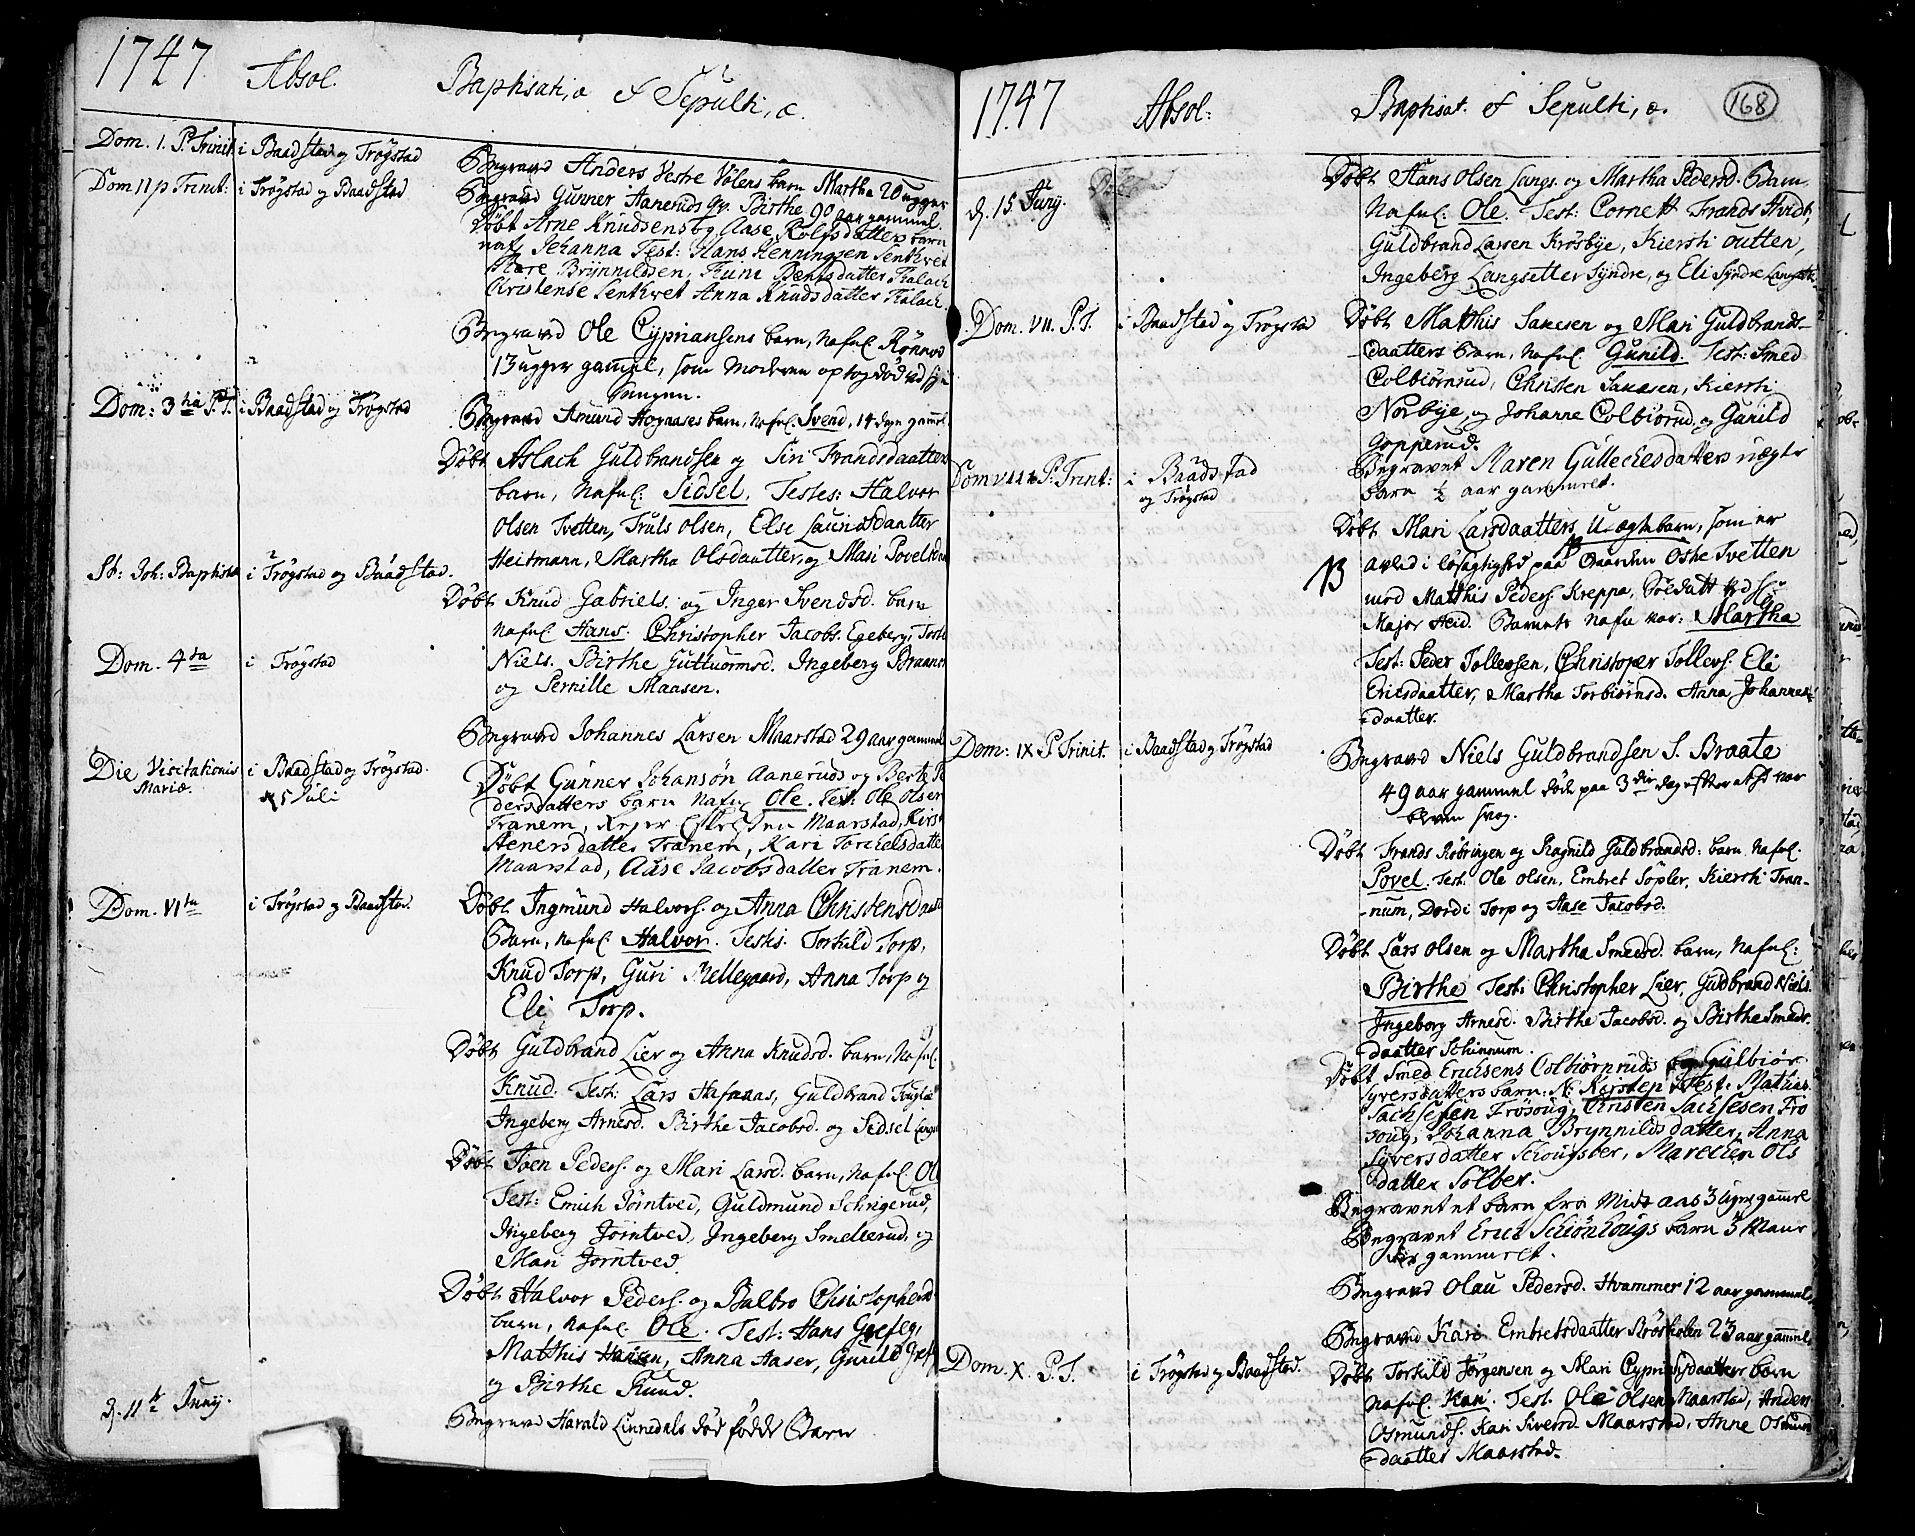 1747
Absol.
Baptisati, æ & Sepulti, æ.
Dom. 1. P. Trinit. i Baadstad og Trøgstad
Begravd Anders Vestre Vølens barn Martha 20 ugger
Dom 11 p Trinit: i Trøgstad og Baadstad
Begravd Gunner Aaneruds qv. Birthe 90 aar gammel.
Døbt Arne Knudsens og Aase Rolfsdatters barn
nafl Johanna Test: Hans Henningsen
Brÿnnildsen,
Christense Anna Knudsdatter
Begravd Ole CyprianSens barn, Nafnl. Rønnog
13 ugger gammel, som Moderen
Dom: 3tia P.T. i Baadstad og Trøgstad
Begravd Amund barn, Nafnl. Svend, 14 dage gamml.
Døbt Aslach Guldbrandsen og Siri Frandsdaatters
barn, Nafnl: Sidsel. Testes: Halvor
Olsen Tvetten, Truls Olsen, Else Lauridsdaatter
Heitmann, Martha Olsdaatter, og Mari Povelsdaa
St: Joh: Baptistæ i Trøgstad og Baadstad.
Døbt Knud Gabriels. og Inger Svendsd. barn
Nafnl Hans. Christopher Jacobs. Egeberg,
Dom. 4ta i Trøgstad
Niels. Birthe Guttuormsd. Ingeberg
og Pernille Maasen.
Begravd Johannes Larsen Maarstad 29 aar gammel
Die Visitationis i Baadstad og Trøgstad.
Mariæ.
5 Juli
Døbt Gunner Johansøn Aaneruds og Berte Pe
dersdatters barn Nafnl Ole. Test: Ole Olsen
Tranem, Maarstad, Kirst
Kari Torchelsdatter
Maarstad, Aase Jacobsdatter Tranem.
Dom. VIta i Trøgstad og Baadstad.
Døbt Ingmund Halvors. og Anna Christensdaat
Barn, Nafnl. Halvor. Testis. Torkild Torp,
Knud Torp, Guri Mellegaard, Anna Torp og
Eli Torp.
Døbt Guldbrand Lier og Anna Knudsd. barn, Nafnl.
Knud. Test: Lars Hafnaas, Guldbrand
Ingeberg Arnesd. Birthe Jacobsd. og Sidsel
Døbt Joen Peders. og Mari Larsd. barn, Nafnl Ol
Test: Emich Jørntved, Guldmund
Ingeberg Jørntved, Ingeberg Smellerud, og
Mari Jørntved.
Døbt Halvor Peders. og Balbro Christophersd
barn, Nafnl. Ole. Test: Hans
Matthis Hansen, Anna Aaser, Gunild
og Birthe Ruud.
d. 11te Juny.
Begravd Harald Linnedals død fødde Barn
1747
Absol:
Baptisat. & Sepulti, æ.
168
d. 15 Juny.
Døbt Hans Olsen Langs. og Martha Pedersd. Barn
Nafnl: Ole. Test: Cornett Frands Hvidt,
Guldbrand Larsen Krosbye, Kiersti Outten,
Ingeberg Langsetter Syndre, og Eli Syndre Langsett
Dom. VII. P.T. i Baadstad og Trøgstad
Døbt Matthis Sacsen og Mari Guldbrands-
-daatters Barn, Nafnl. Gunild. Test: Smed
Colbiørnrud, Christen Sacsen, Kiersti
Norbye, og Johanne Colbiørud, og Gunild
Gopperud.
Dom VIII P. Trinit: i Baadstad
og Trøgstad
Begravet Maren Gullechsdatters uægte
barn ½ aar gammelt.
Døbt Mari Larsdaatters, Uægte barn, som er
avled i løsagtighed paa Gaarden Oshe Tvetten
med Matthis Peders. Kreppa, Soldatt
Major Heid. Barnets Nafn var: Martha
Test: Peder Tollevsen, Christopher Tollevs. Eli
Ericsdaatter, Martha Torbiørnsd. Anna Johannes-
-daatter.
Dom: IX P Trinit. i Baadstad og Trøgstad
Begravd Niels Guldbrandsen S. Braate
49 aar gammel død paa 3die dag efter at han var
bleven syog.
Døbt Frands Robringen og Ragnild Guldbrandsd: barn Nafnl.
Povel: Test: Ole Olsen, Embret Søpler, Kiersti Tran-
-num, Dordi Torp og Aase Jacobsd.
Døbt Lars Olsen og Martha Smedsd. barn, Nafnl:
Birthe Test: Christopher Lier, Guldbrand Niels.
Ingeborg Arnesd. Birthe Jacobsd. og Birthe Smeds-
daatter Schinnum.
Døbt Smed Ericksens Colbiørnruds og
Syversdatters barn: N. Kirsten Test: Mathias
Sachsesen Frøsoug, Cristen Sachsesen Frø
soug, Johanna Brynnilds datter, Anna
Syversdatter Marechen Ols
datter Solber.
Begravet et barn fra 3 ugers gammel
Begravet Erich barn 3
gammelt.
Begravd Olau Pedersd. Hvammer 12 aar gammel
Begravd Kari Embretsdaatter 23 aar gamml
Dom. X. P.T. i Trøgstad og Baadstad.
Døbt Torkild Jørgensen og Mari Cypriansdaatters barn
Nafnl. Kari. Test. Ole Olsen Maarstad, Anders
Osmunds. Kari Siversd. Maarstad, Anne Osmun
-daatter Maarstad.